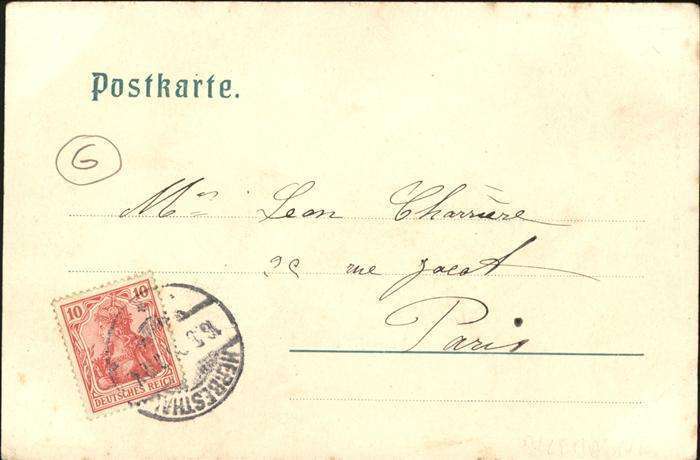 Postkarte.
G
Mr Leon Charrière
rue Jacob
Paris
10 10
DEUTSCHES REICH
HERBESTHAL